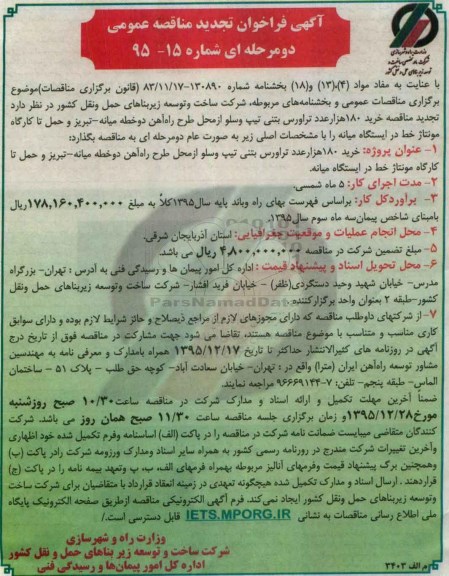 آگهی فراخوان تجدید مناقصه عمومی
دومرحله ای شماره ۱۵- ۹۵
با عنایت به مفاد مواد (۴)،(۱۳) و(۱۸) بخشنامه شماره ۱۳۰۸۹۰-۸۳/۱۱/۱۷ (قانون برگزاری مناقصات)موضوع
برگزاری مناقصات عمومی و بخشنامه‌های مربوطه، شرکت ساخت وتوسعه زیربناهای حمل ونقل کشور در نظر دارد
تجدید مناقصه خرید ۱۸۰هزارعدد تراورس بتنی تیپ وسلو ازمحل طرح راه‌آهن دوخطه میانه-تبریز و حمل تا کارگاه
مونتاژ خط در ایستگاه میانه را با مشخصات اصلی زیر به صورت عام دومرحله ای به مناقصه بگذارد:
۱- عنوان پروژه: خرید ۱۸۰هزارعدد تراورس بتنی تیپ وسلو ازمحل طرح راه‌آهن دوخطه میانه-تبریز و حمل تا
کارگاه مونتاژ خط در ایستگاه میانه.
۲- مدت اجرای کار: ۵ ماه شمسی.
۳- برآوردکل کار: براساس فهرست بهای راه وباند پایه سال۱۳۹۵کلاً به مبلغ ۱۷۸,۱۶۰,۴۰۰,۰۰۰ریال
بامبنای شاخص پیمان‌سه ماه سوم سال۱۳۹۵.
۴- محل انجام عملیات و موقعیت جغرافیایی: استان آذربایجان شرقی.
۵- مبلغ تضمین شرکت در مناقصه ۴,۸۰۰,۰۰۰,۰۰۰ ریال می باشد.
۶- محل تحویل اسناد و پیشنهاد قیمت : اداره کل امور پیمان ها و رسیدگی فنی به آدرس : تهران- بزرگراه
مدرس- خیابان شهید وحید دستگردی(ظفر) - خیابان فرید افشار- شرکت ساخت وتوسعه زیربناهای حمل ونقل
کشور-طبقه ۲ بعنوان واحد برگزارکننده.
۷- از شرکتهای داوطلب مناقصه که دارای مجوزهای لازم از مراجع ذیصلاح و حائز شرایط لازم بوده و دارای سوابق
کاری مناسب و متناسب با موضوع مناقصه هستند، تقاضا می شود جهت مشارکت در مناقصه فوق از تاریخ درج
آگهی در روزنامه های کثیرالانتشار حداکثر تا تاریخ ۱۳۹۵/۱۲/۱۷ همراه بامدارک و معرفی نامه به مهندسین
مشاور توسعه راه‌آهن ایران (مترا) واقع در : تهران- خیابان سعادت آباد- کوچه حق طلب - پلاک ۵۱ - ساختمان
الماس- طبقه پنجم- تلفن: ۷-۹۶۶۶۹۱۴۴ مراجعه نمایند.
ضمناً آخرین مهلت تکمیل و ارائه اسناد و مدارک شرکت در مناقصه ساعت۱۰/۳۰ صبح روزشنبه
مورخ۱۳۹۵/۱۲/۲۸و زمان برگزاری جلسه مناقصه ساعت ۱۱/۳۰ صبح همان روز می باشد. شرکت
کنندگان متقاضی میبایست ضمانت نامه شرکت در مناقصه را در پاکت (الف) اساسنامه وفرم تکمیل شده خود اظهاری
وآخرین تغییرات شرکت مندرج در روزنامه رسمی کشور به همراه سایر اسناد ومدارک ورزومه شرکت رادر پاکت (ب)
وهمچنین برگ پیشنهاد قیمت وفرمهای آنالیز مربوطه بهمراه فرمهای الف، ب، پ وتعهد بیمه نامه را در پاکت (ج)
قراردهند . ارسال اسناد و مدارک تکمیل شده هیچگونه تعهدی در زمینه انعقاد قرارداد با متقاضیان برای شرکت ساخت
وتوسعه زیربناهای حمل ونقل کشور ایجاد نمی‌کند. فرم آگهی الکترونیکی مناقصه ازطریق صفحه الکترونیک پایگاه
ملی اطلاع رسانی مناقصات به نشانی IETS.MPORG.IR قابل دسترسی است./
وزارت راه و شهرسازی
شرکت ساخت و توسعه زیر بناهای حمل و نقل کشور
اداره کل امور پیمان‌ها و رسیدگی فنی
م الف ۳۴۰۳
ParsNamadData